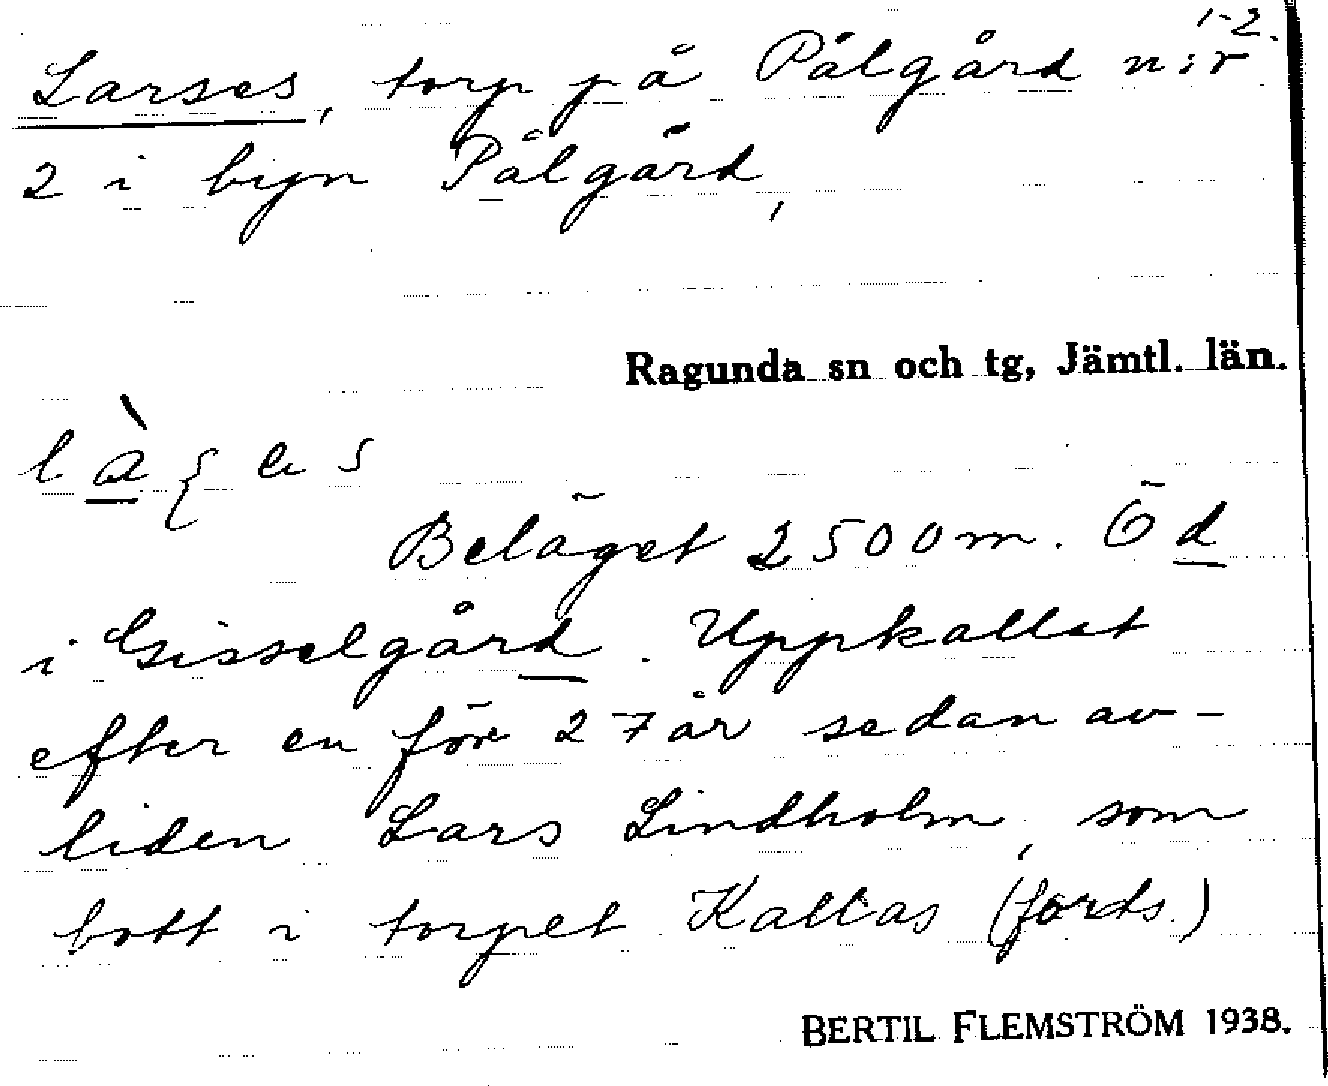 1-2.
Larses, torp på Pålgård n:r
2 i byn Pålgård,
Ragunda sn och tg, Jämtl. län.
Beläget 2500 m. Ö d
i Gisselgård. Uppkallat
efter en för 27 år sedan av-
liden Lars Lindholm, som
bott i torpet Kallas (forts.)
BERTIL FLEMSTRÖM 1938.